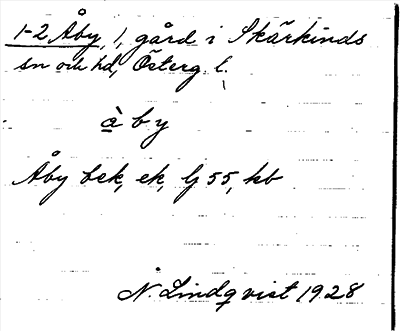 1-2 Åby, 1, gård i Skärkinds
sn och hd, Österg. l.
à b y
Åby bsk, ek, lj 55, kb
N. Lindqvist 1928